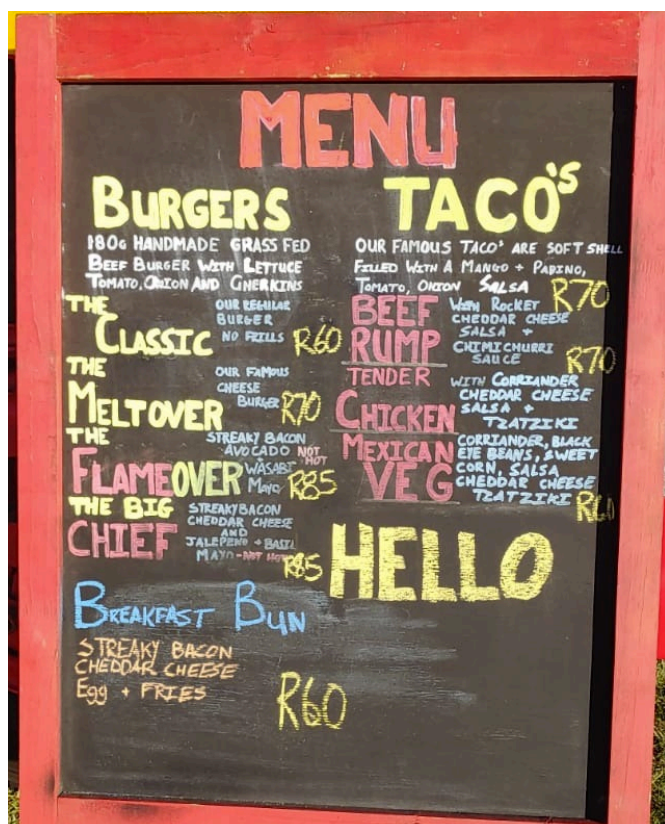 MENU
BURGERS
180G HANDMADE GRASS FED
BEEF BURGER WITH LETTUCE
TOMATO, ONION AND GHERKINS
THE
CLASSIC
OUR REGULAR
BURGER
NO FRILLS
R60
THE
MELTOVER
OUR FAMOUS
CHEESE
BURGER
R70
THE
FLAMEOVER
STREAKY BACON
AVOCADO NOT
HOT
WASABI
MAYO
R85
THE BIG
CHIEF
STREAKY BACON
CHEDDAR CHEESE
AND
JALEPENO + BASIL
MAYO - NOT HOT
R85
BREAKFAST BUN
STREAKY BACON
CHEDDAR CHEESE
Egg + FRIES
R60
TACO'S
OUR FAMOUS TACO'S ARE SOFT SHELL
FILLED WITH A MANGO + PABINO,
TOMATO, ONION SALSA
R70
BEEF
RUMP
WITH ROCKET
CHEDDAR CHEESE
SALSA +
CHIMICHURRI
SAUCE
R70
TENDER
CHICKEN
WITH CORRIANDER
CHEDDAR CHEESE
SALSA +
TZATZIKI
MEXICAN
VEG
CORRIANDER, BLACK
EYE BEANS, SWEET
CORN, SALSA
CHEDDAR CHEESE
TZATZIKI
R60
HELLO